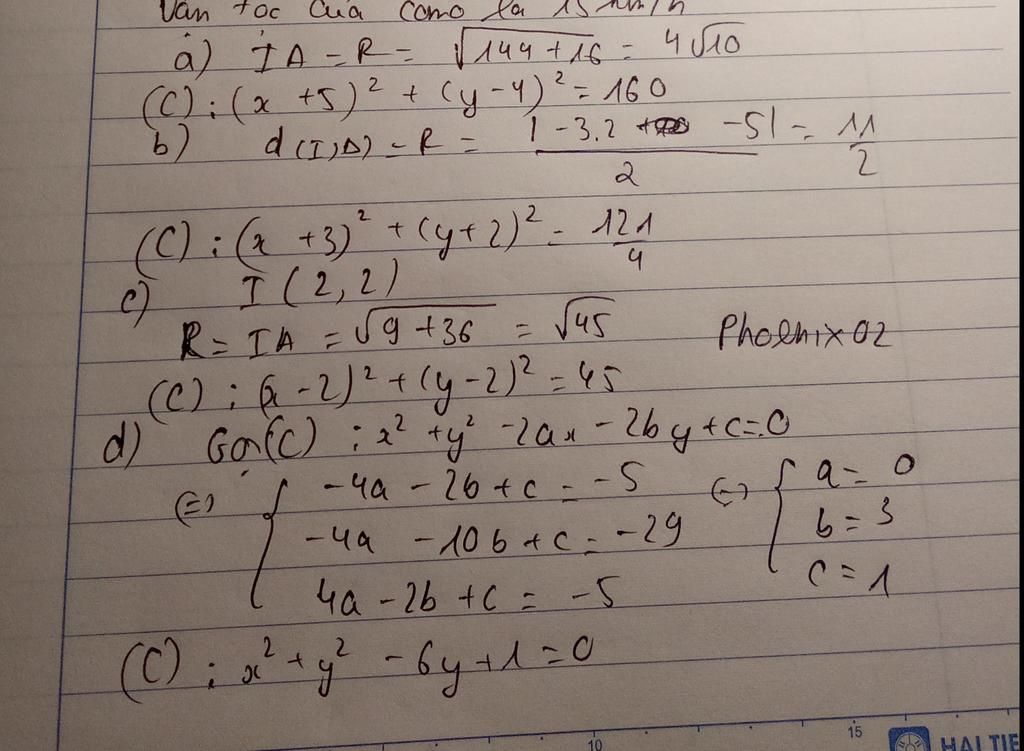 Vận tốc của cano là 15 km/h
a) IA = R = √144+16 = 4√10
(C) : (x + 5)² + (y - 4)² = 160
b) d(I,Δ) = R = |-3.2 -5| / 2 = 11/2
(C) : (x + 3)² + (y + 2)² = 121/4
c) I (2, 2)
R = IA = √9+36 = √45
Phoenix02
(C) : (x - 2)² + (y - 2)² = 45
d) Gọi (C) : x² + y² - 2ax - 2by + c = 0
(=) { -4a - 2b + c = -5 (=) { a = 0
-4a - 10b + c = -29 b = 3
4a - 2b + c = -5 c = 1
(C) : x² + y² - 6y + 1 = 0
10 15
HẢI TIẾ